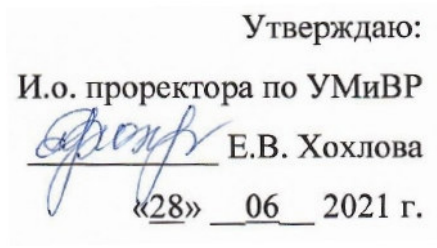 Утверждаю:
И.о. проректора по УМиВР
__________ Е.В. Хохлова
«28» __06__ 2021 г.